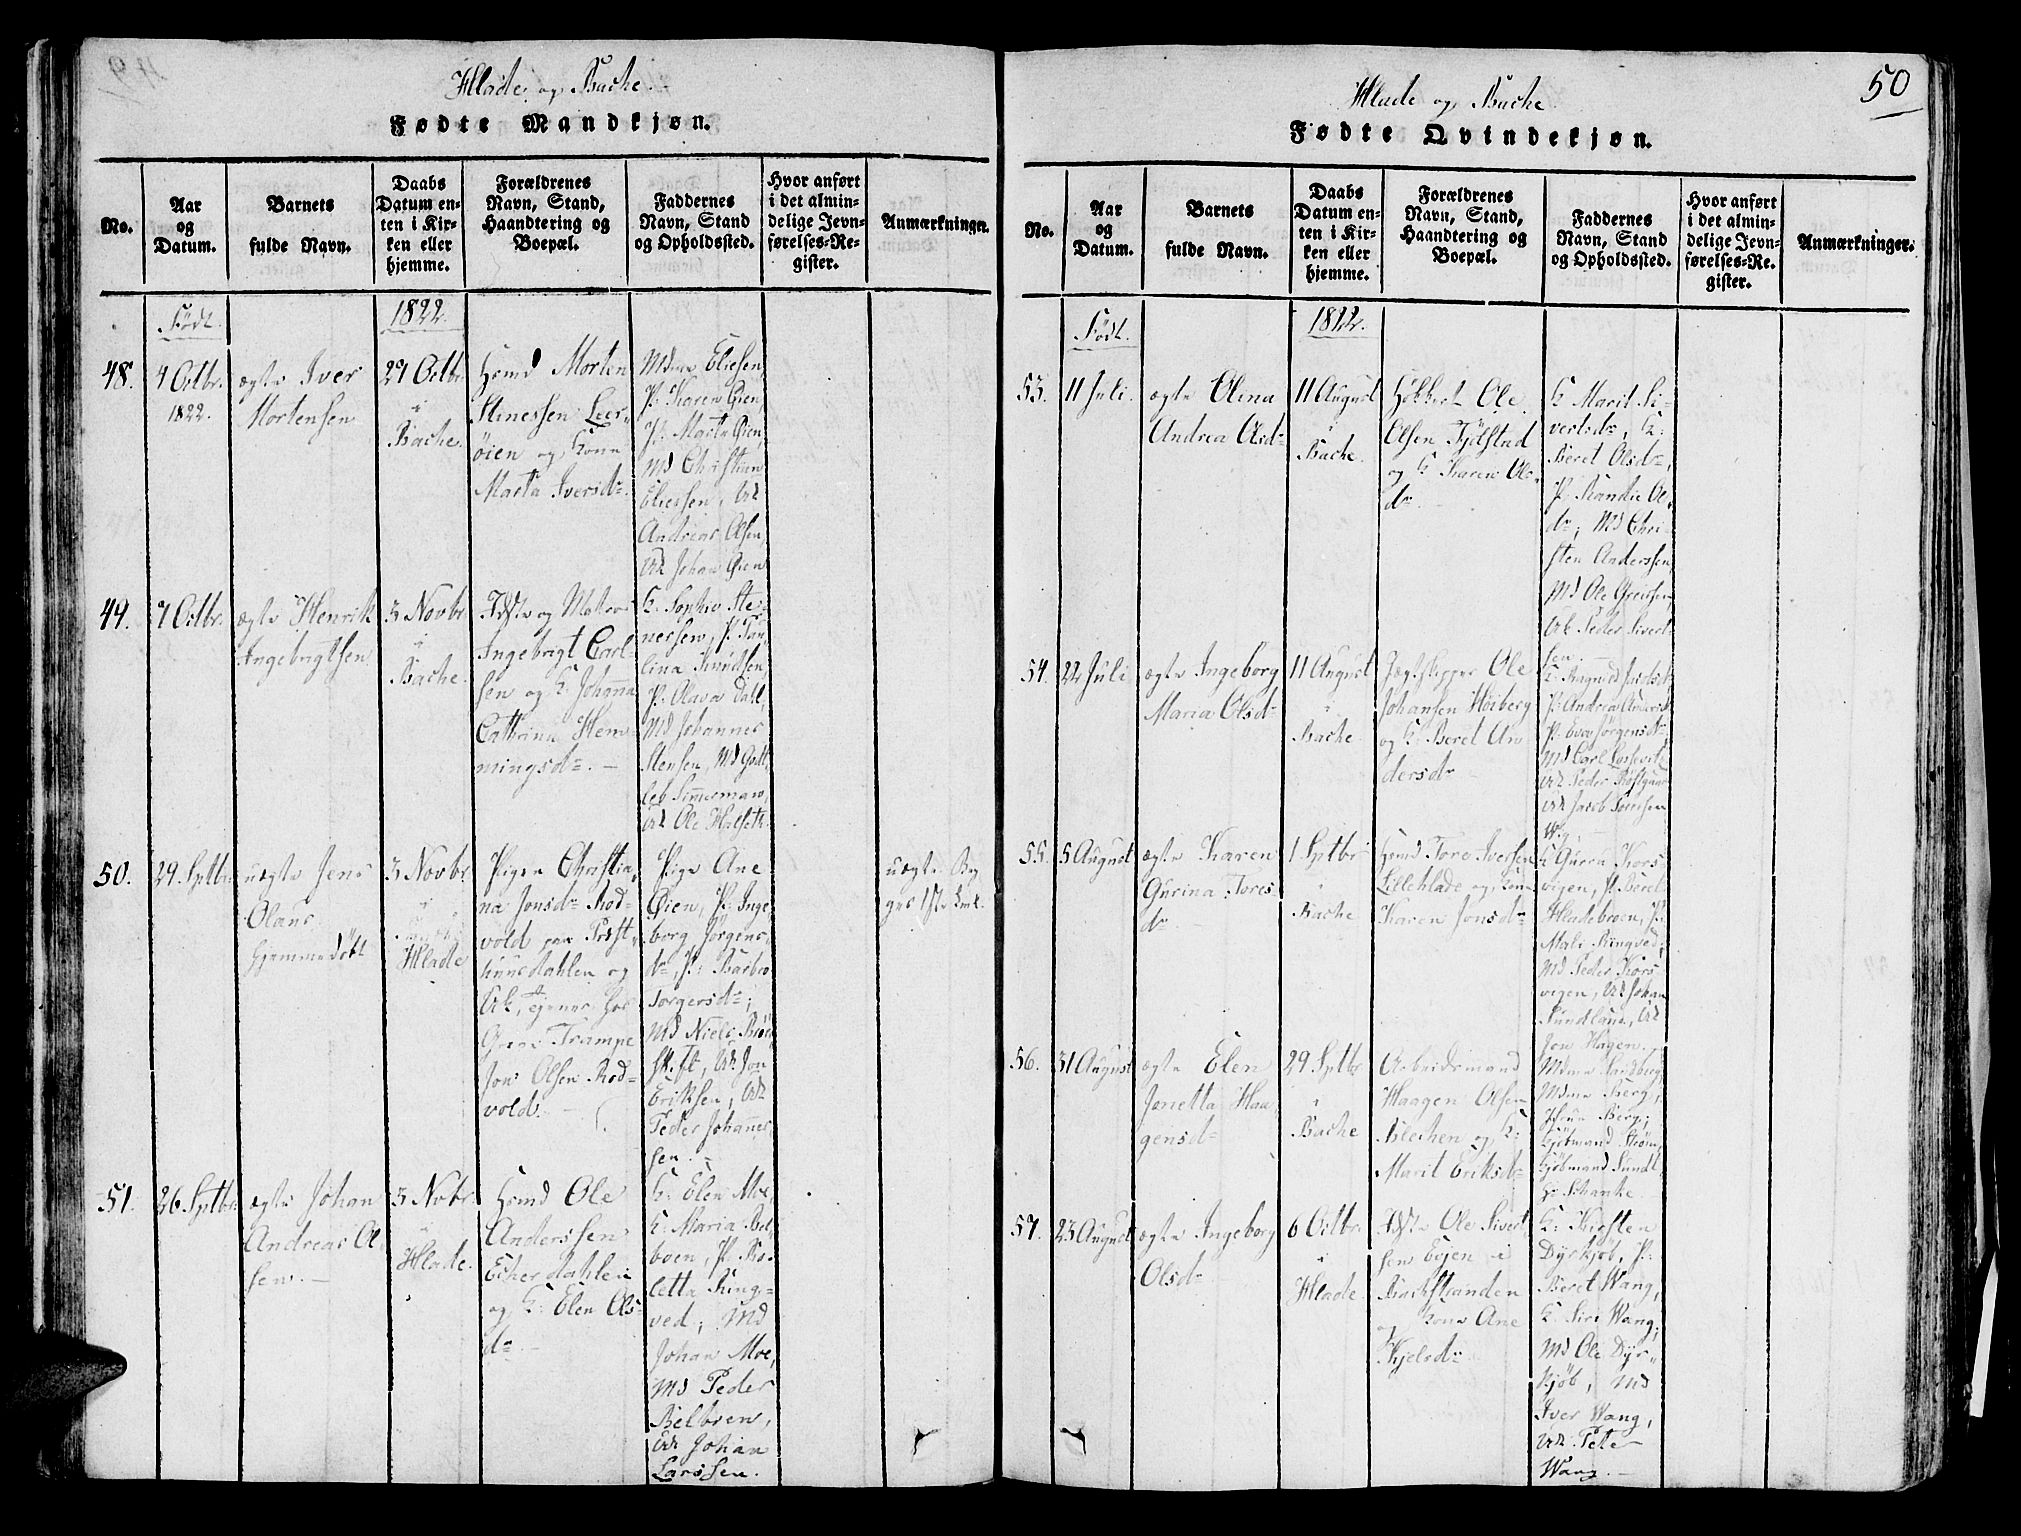 Hlade og Bache.
Fødte Mandkjøn.
No.
Aar
og
Datum.
Barnets
fulde Navn.
Daabs
Datum en-
ten i Kir-
ken eller
hjemme.
Forældrenes
Navn, Stand,
Haandtering og
Boepæl.
Faddernes
Navn, Stand
og Opholdssted.
Hvor anført
i det almin-
delige Jevn-
førelses-Re-
gister.
Anmærkninger.
Født.
1822.
48.
4 Octbr.
1822.
ægte Iver
Mortensen
27 Octbr
i
Bache.
Hsmd Morten
Stinessen Leer-
øien og Kone
Marta Iversdr.
Mdme Eliesen,
P. Karen Øien,
P. Marta Øien,
Md Christian
Eliessen, Uk
Andreas Olsen,
Uk Johan Øien
49.
7 Octbr.
ægte Henrik
Ingebrigtsen
3 Novbr
i
Bache.
og
Ingebrigt Carl-
sen og K. Johanna
Cathrina Hem-
mingsdr.
K. Sophie Ste-
nersen, P.
lina Knudsen,
P. Olava Dahl,
Md Johannes
Stensen, Md Gott-
leb Simmerman,
Uk Ole Halseth.
50.
29 Sptbr.
uægte Jens
Olaus
hjemmedøbt
3 Novbr.
i
Hlade
Pigen Christia-
na Jonsdr Rod-
vold paa Præst-
huusdahlen og
Uk, tjener hos
Greve Trampe
Jon Olsen Rod-
vold.
Pige Ane
Øien, P. Inge-
borg Jørgens-
dr, P. Barbro
Torgersdr;
Md Niels
Uk Jon
Eriksen, Uk
Peder Johannes-
sen.
uægte Beg-
ges 1ste Leiel.
51.
26 Sptbr.
ægte Johan
Andreas Ol-
sen.
3 Novbr.
i
Hlade.
Hsmd Ole
Anderssen
Echerdahlen
og K. Elen Ols-
dr.
K. Elen Moe,
K. Maria Bel-
boen, P. Ko-
letta Ring-
ved; Md
Johan Moe,
Md Peder
Belboen,
Uk Johan
Larssen.
50
Hlade og Bache
Fødte Qvindekjøn.
No.
Aar
og
Datum.
Barnets
fulde Navn.
Daabs
Datum en-
ten i Kir-
ken eller
hjemme.
Forældrenes
Navn, Stand,
Haandtering og
Boepæl.
Faddernes
Navn, Stand
og Opholdssted.
Hvor anført
i det almin-
delige Jevn-
førelses-Re-
gister.
Anmærkninger.
Født.
1822.
53.
11 Juli.
ægte Olina
Andrea Olsdr
11 August
i
Bache.
Ole
Olsen Tjelstad
og K. Karen Ols-
dr.
K. Marit Si-
vertsdr, K.
Beret Olsdr,
P. Randie Ols-
dr; Md Chri-
sten Anderssen,
Md Ole Greissen,
Uk Peder Sivert-
sen.
54.
22 Juli
ægte Ingeborg
Maria Olsdr
11 August
i
Bache.
Jægtskipper Ole
Johansen Høiberg
og K. Beret An-
dersdr
K. Jacobsdr,
P. Andrea Andersdr
P. Jørgensdr,
Md Carl
Uk Peder
Uk Jacob
55.
5 August
ægte Karen
Gurina Tores-
dr.
1 Sptbr
i
Bache
Hsmd Tore Iversen
Lillehlade og Kone
Karen Jonsdr
K. Gurru Kors-
vigen, P. Beret
Hladebroen, P.
Mali Ringved;
Md Peder Kors-
vigen, Uk Johan
Sundland, Uk
Jon Hagen.
56.
31 August
ægte Elen
Jonetta Haa-
gensdr
29 Sptbr
i
Bache
Arbeidsmand
Haagen Olsen
Blechen og K.
Marit Eriksdr
Mdme Sandberg
Mdme Berg,
Jfrue Berg;
Kjøbmand Strøm,
Kjøbmand Sundt,
Hr Schanke.
57.
23 August
ægte Ingeborg
Olsdr
6 Octbr.
i
Hlade.
Ole Sivert-
sen Evjen i
Backstranden
og Kone Ane
Kjelsdr
K. Kirsten
Dyrkjøb, P.
Beret Wang,
K. Siri Wang;
Md Ole Dyr-
kjøb, Md
Iver Wang,
Uk. Peter
Wang.